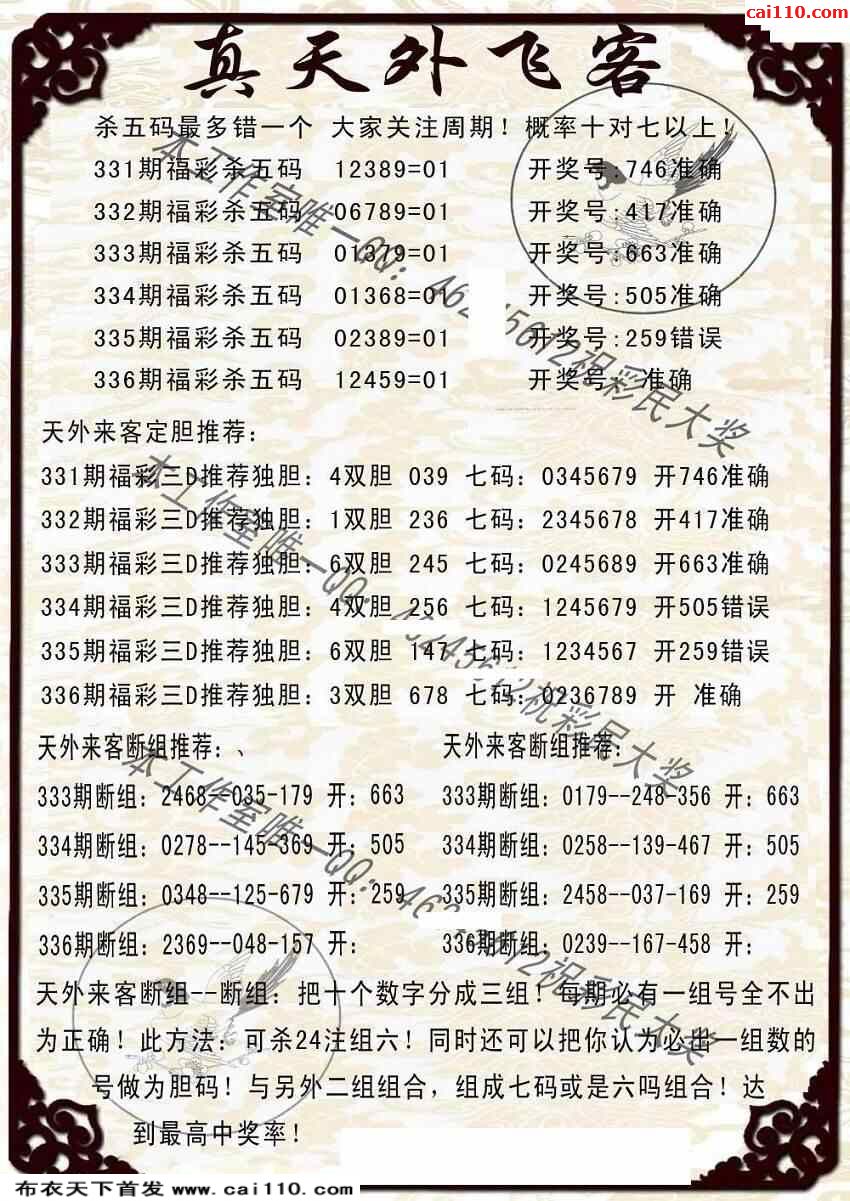 cai110.com
真天外飞客
杀五码最多错一个 大家关注周期！概率十对七以上！
331期福彩杀五码 12389=01 开奖号:746准确
332期福彩杀五码 06789=01 开奖号:417准确
333期福彩杀五码 01319=01 开奖号:663准确
334期福彩杀五码 01368=01 开奖号:505准确
335期福彩杀五码 02389=01 开奖号:259错误
336期福彩杀五码 12459=01 开奖号: 准确
天外来客定胆推荐：
331期福彩三D推荐独胆：4双胆 039 七码：0345679 开746准确
332期福彩三D推荐独胆：1双胆 236 七码：2345678 开417准确
333期福彩三D推荐独胆：6双胆 245 七码：0245689 开663准确
334期福彩三D推荐独胆：4双胆 256 七码：1245679 开505错误
335期福彩三D推荐独胆：6双胆 147 七码：1234567 开259错误
336期福彩三D推荐独胆：3双胆 678 七码：0236789 开 准确
天外来客断组推荐：、 天外来客断组推荐：
333期断组：2468--035-179 开：663 333期断组：0179--248-356 开：663
334期断组：0278--145-369 开：505 334期断组：0258--139-467 开：505
335期断组：0348--125-679 开：259 335期断组：2458--037-169 开：259
336期断组：2369--048-157 开： 336期断组：0239--167-458 开：
天外来客断组--断组：把十个数字分成三组！每期必有一组号全不出
为正确！此方法：可杀24注组六！同时还可以把你认为必出一组数的
号做为胆码！与另外二组组合，组成七码或是六吗组合！达
到最高中奖率！
本工作室唯一QQ： 祝彩民大奖
本工作室唯一QQ： 祝彩民大奖
本工作室唯一QQ： 祝彩民大奖
布衣天下首发 www.cai110.com